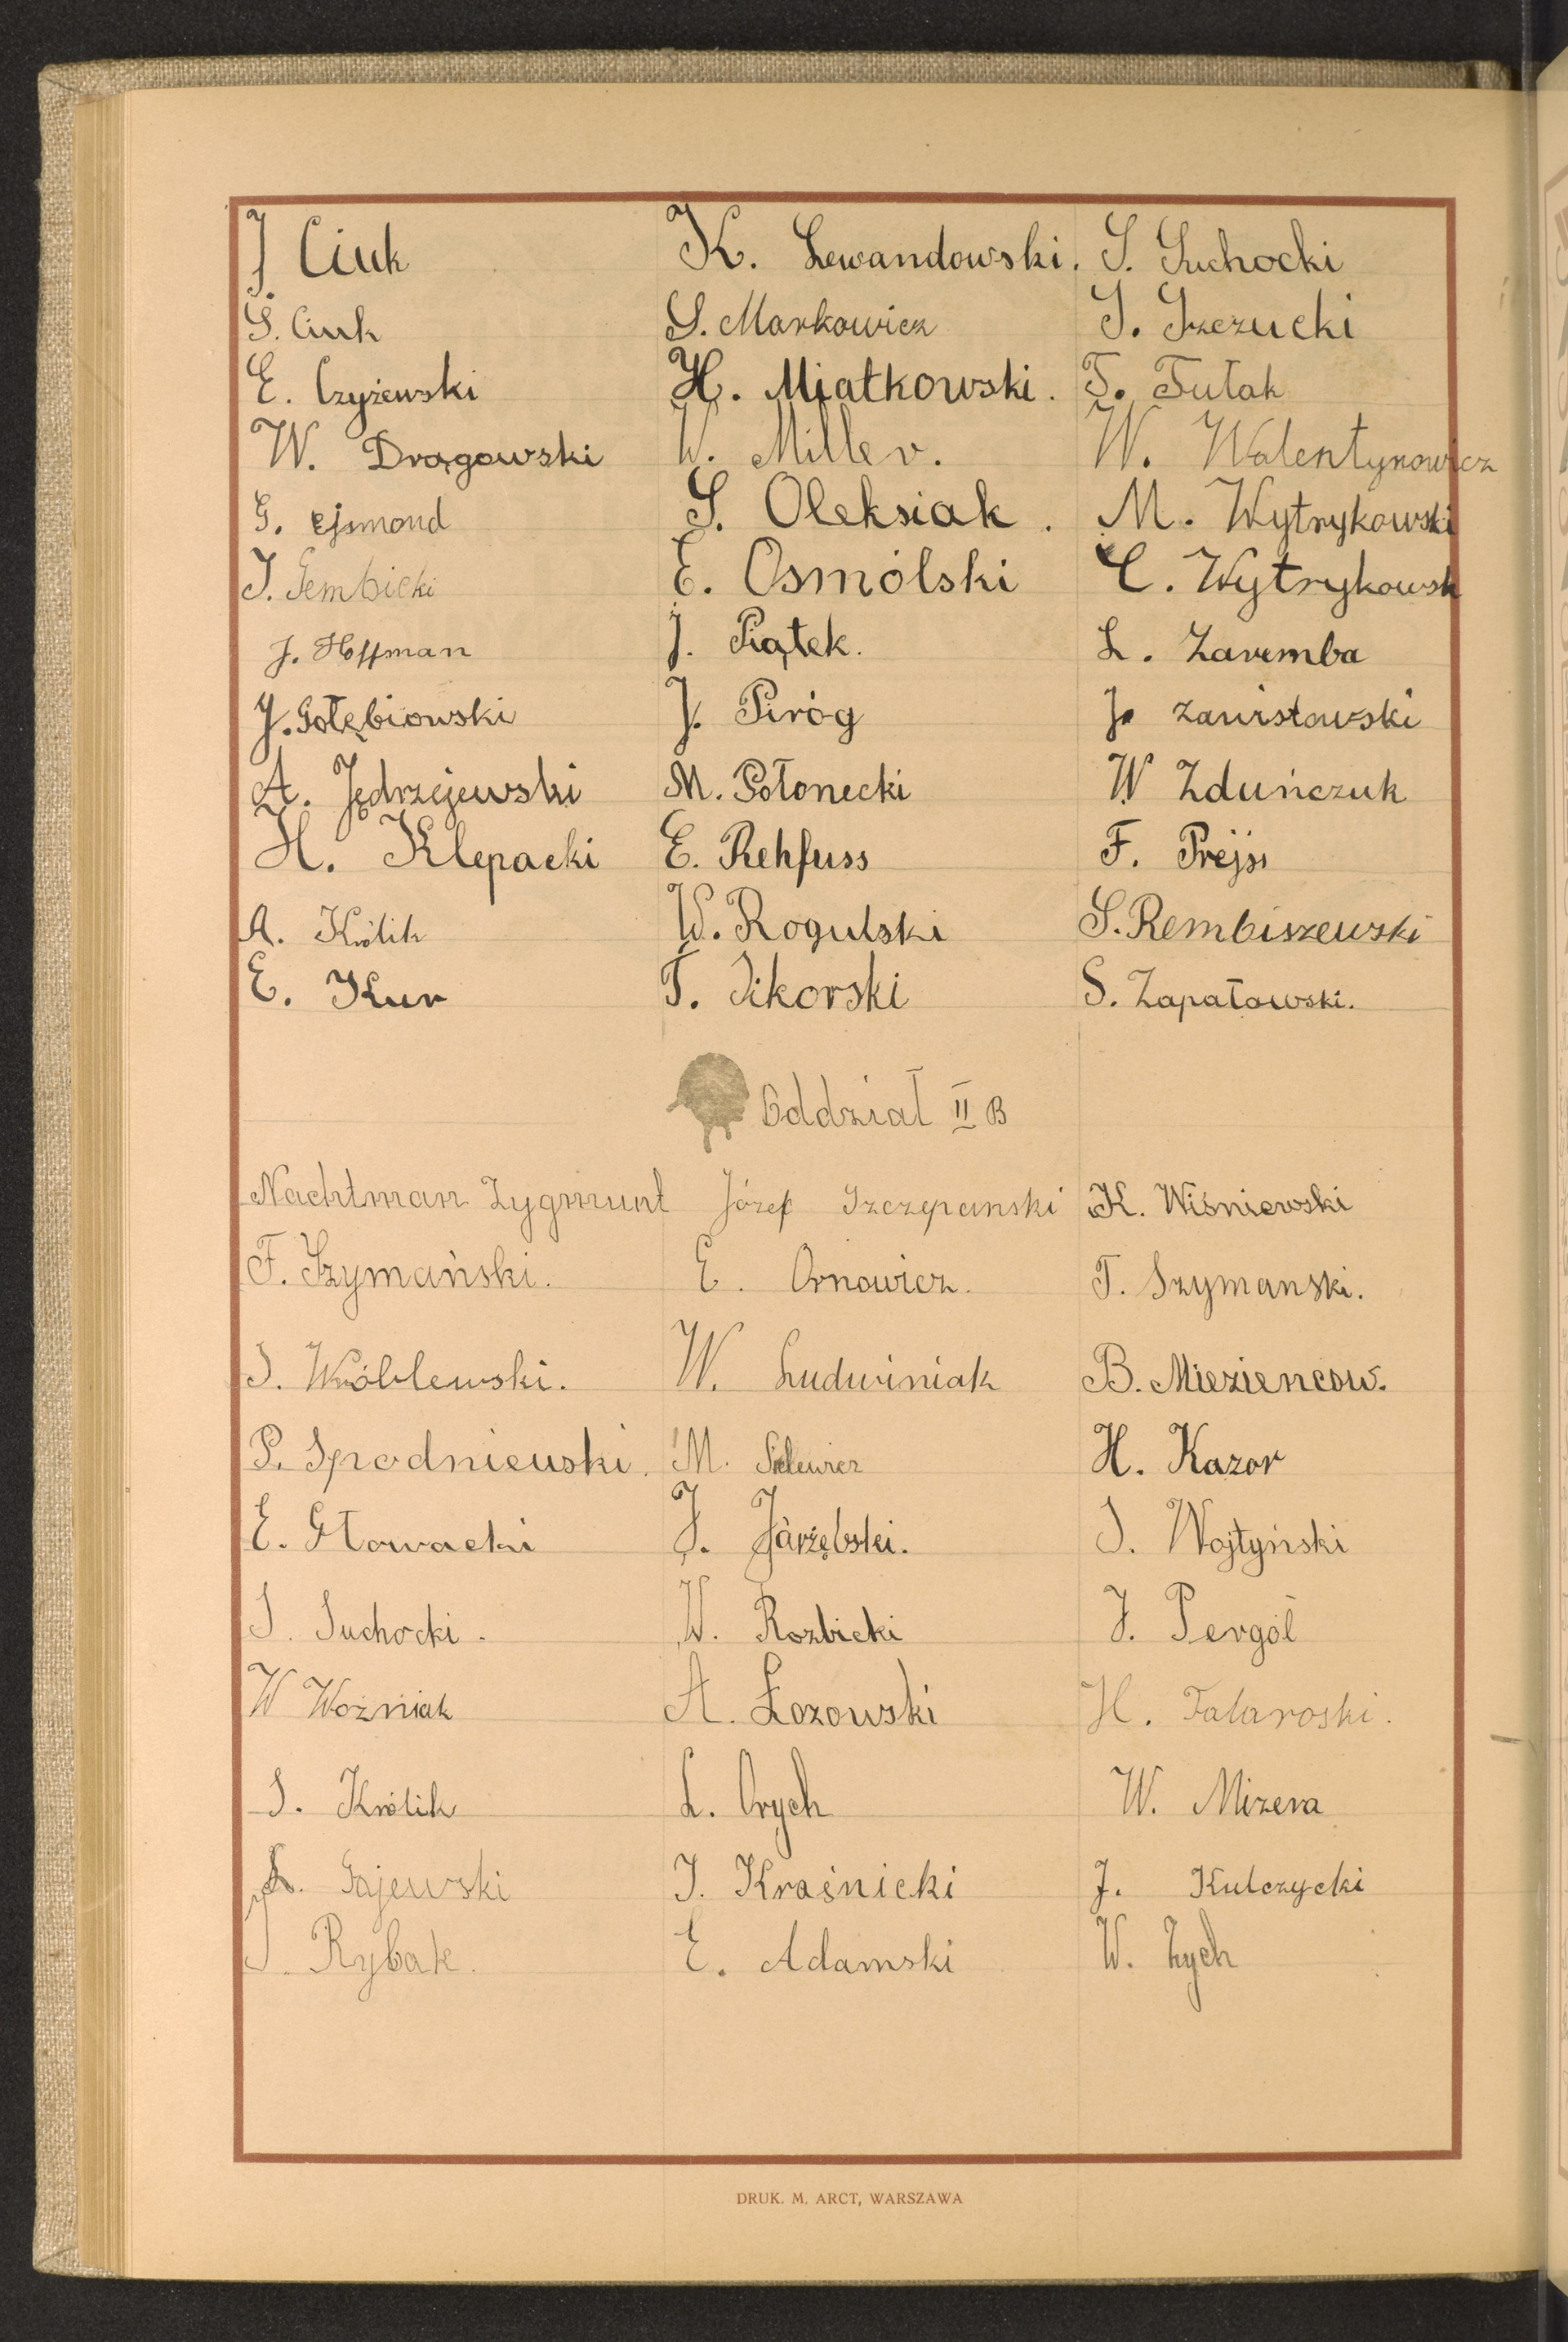 J. Ciuk
S. Ciuk
E. Czyżewski
W. Drągowski
G. Ejsmond
J. Gembicki
J. Hoffman
J. Gołębiowski
A. Jędrzejewski
H. Klepacki
A. Królik
E. Kur
K. Lewandowski.
S. Markowicz
H. Miatkowski.
W. Miller.
S. Oleksiak.
E. Osmólski
J. Piątek.
J. Piróg
M. Połonecki
E. Rehfuss
W. Rogulski
T. Sikorski
S. Suchocki
S. Szczucki
T. Tutak
W. Walentynowicz
M. Wytrykowski
C. Wytrykowsk
L. Zaremba
J. Zawistowski
W Zduńczuk
F. Prejss
S. Rembiszewski
S. Zapałowski.
Oddział II B
Nachtman Zygmunt
F. Szymański.
S. Wróblewski.
P. Spodniewski.
E. Głowacki
S. Suchocki.
W Woźniak
S. Królik
L. Gajewski
J. Rybak.
Józef Szczepanski
E. Ornowicz.
W. Ludwiniak
M.
J. Jarzębski.
W. Rozbicki
A. Łozowski
L. Orych
J. Kraśnicki
E. Adamski
K. Wiśniewski
T. Szymanski.
B. Mieziencow.
H. Kazor
S. Wojtyński
J. Pergół
H. Talaroski.
W. Mizera
J. Kulczycki
W. Zych
DRUK. M. ARCT, WARSZAWA